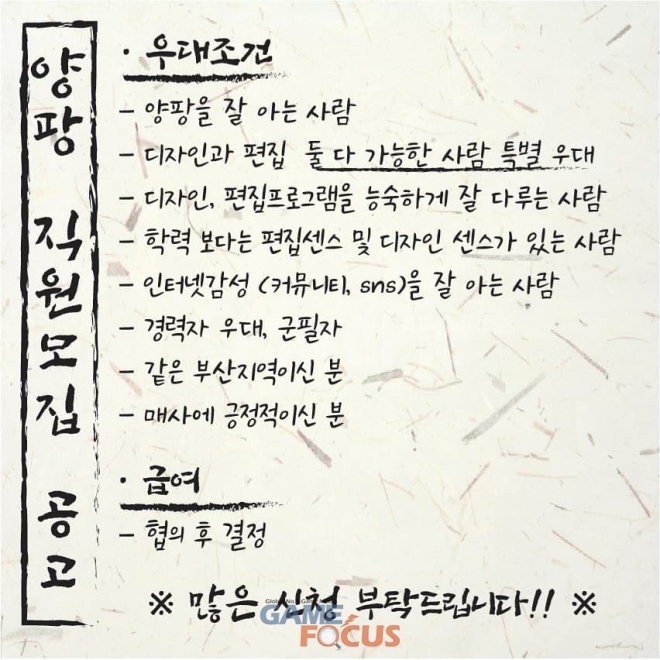 양팡 직원모집 공고
· 우대조건
- 양팡을 잘 아는 사람
- 디자인과 편집 둘 다 가능한 사람 특별 우대
- 디자인, 편집프로그램을 능숙하게 잘 다루는 사람
- 학력 보다는 편집센스 및 디자인 센스가 있는 사람
- 인터넷감성 (커뮤니티, sns)을 잘 아는 사람
- 경력자 우대, 군필자
- 같은 부산지역이신 분
- 매사에 긍정적이신 분
· 급여
- 협의 후 결정
※ 많은 신청 부탁드립니다!! ※
GAME
FOCUS